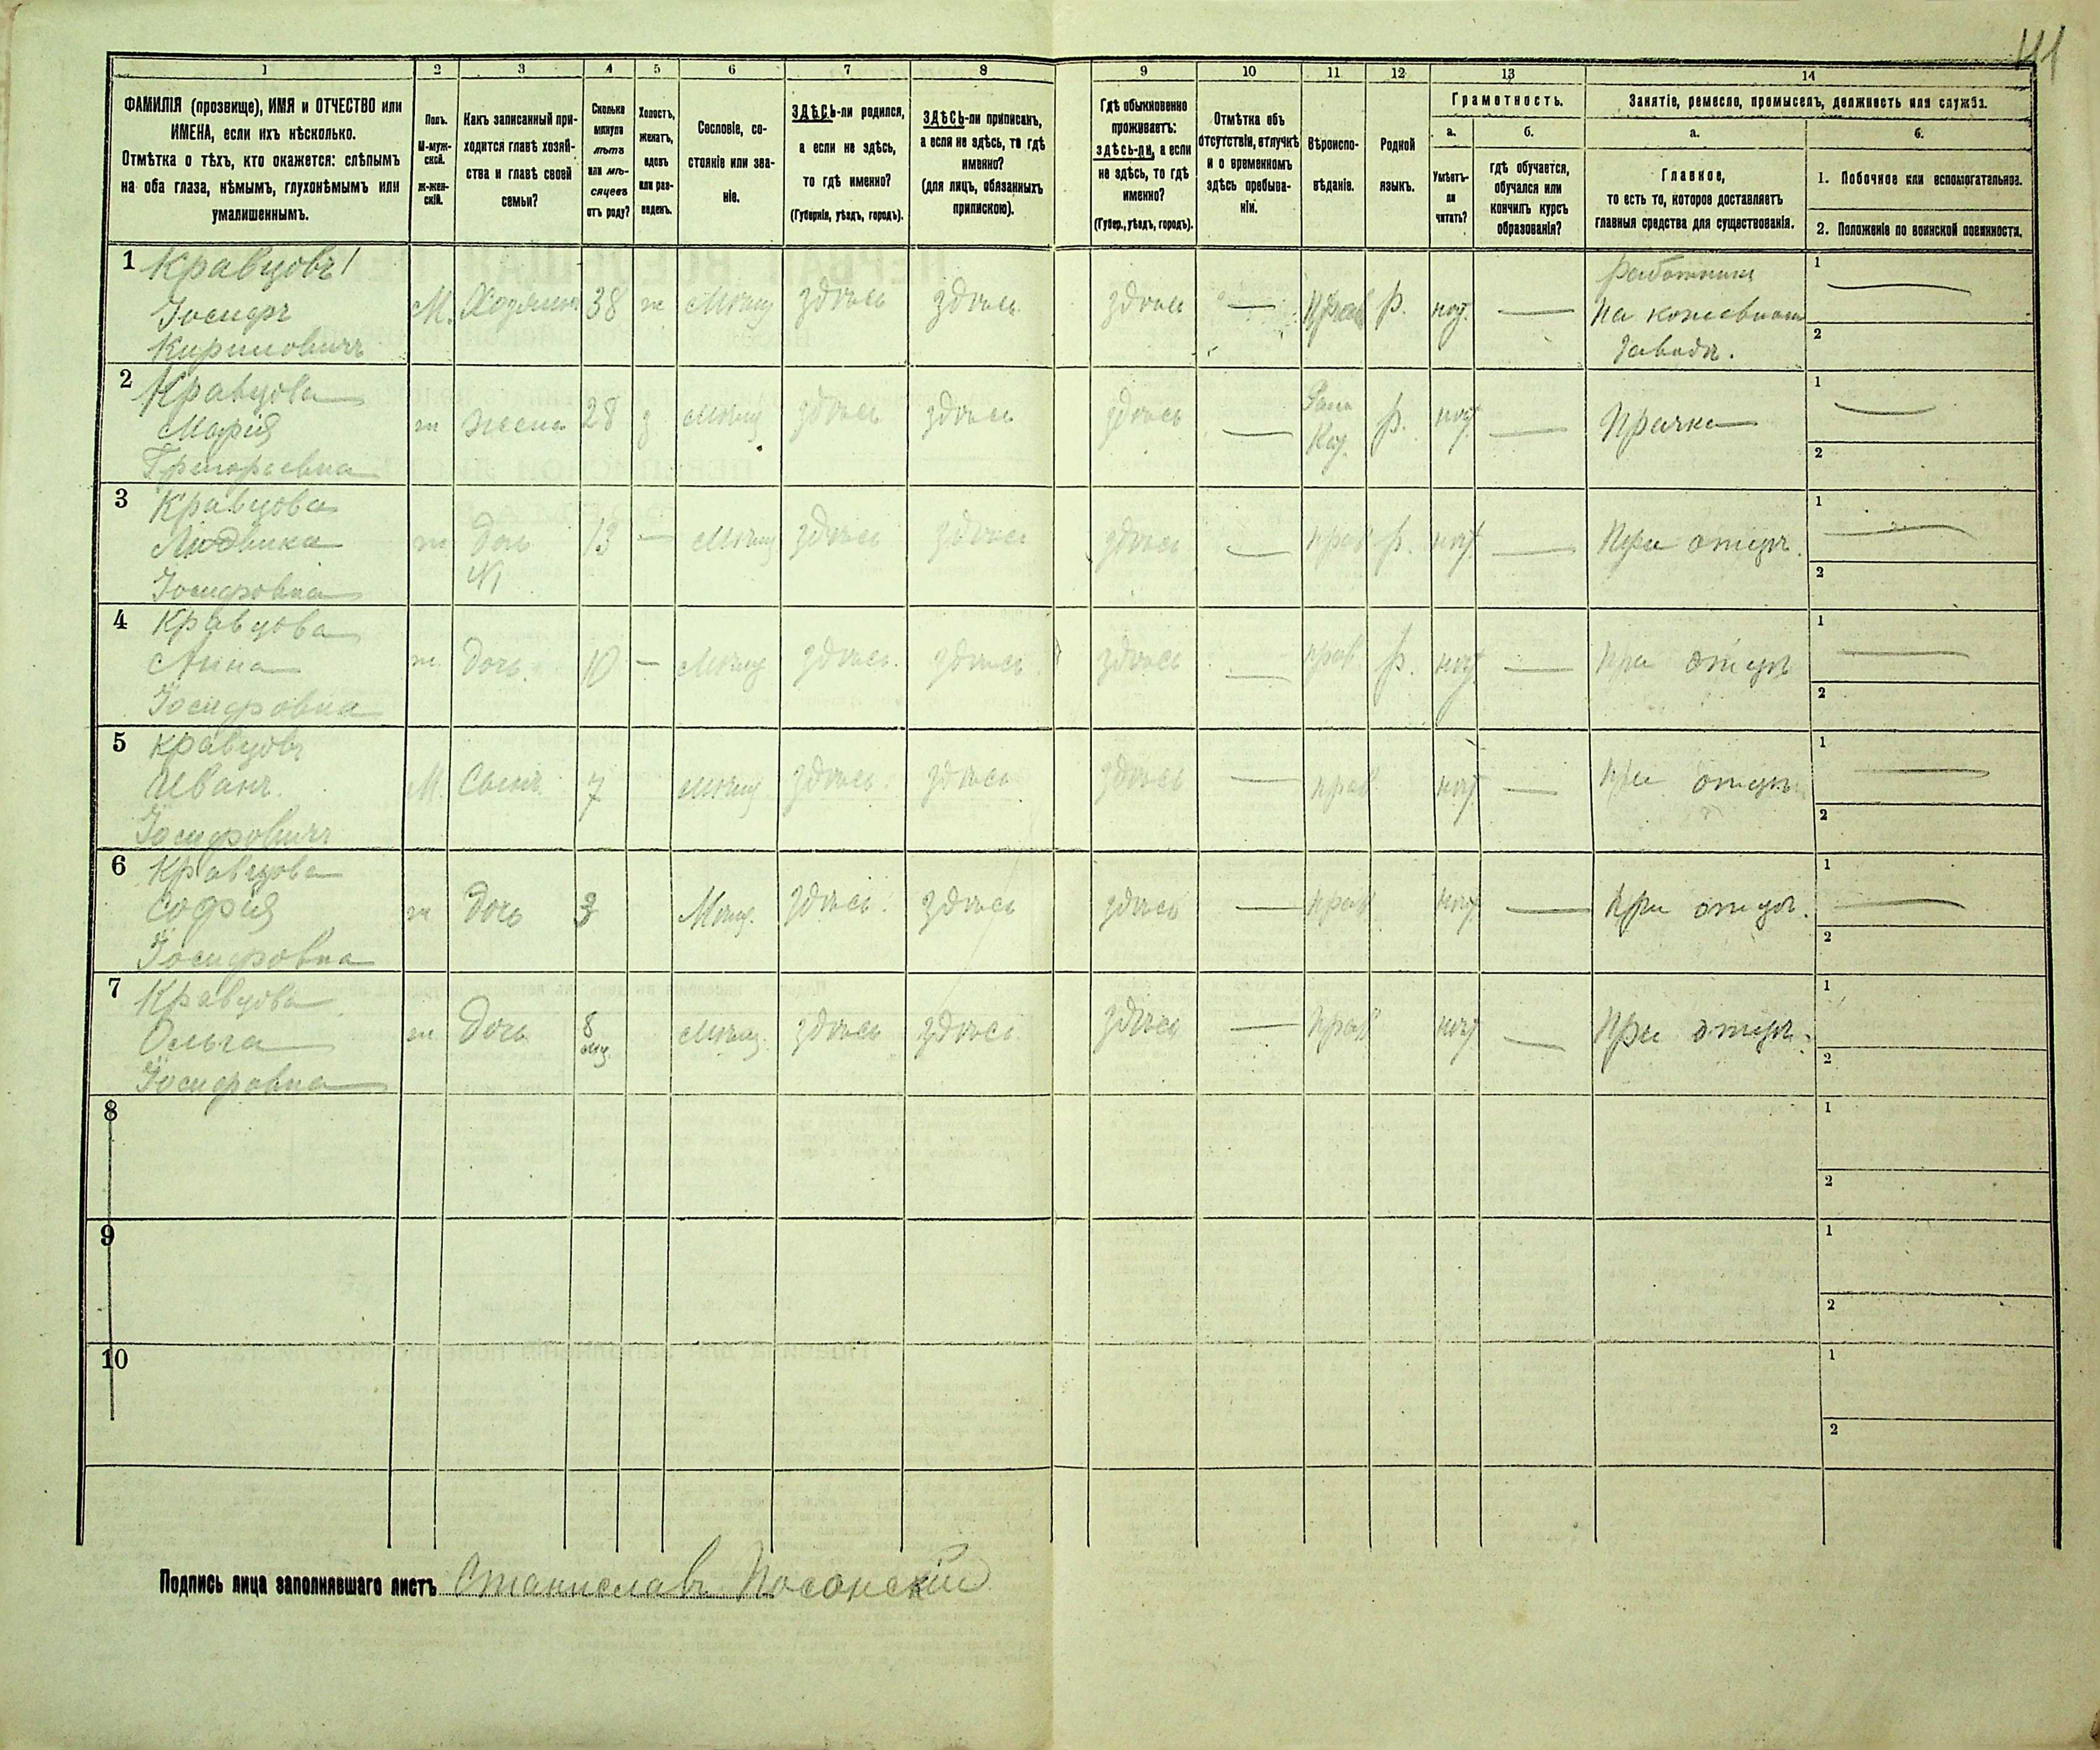 141
1 2 3 4 5 6 7 8 9 10 11 12 13 14
ФАМИЛІЯ (прозвище), ИМЯ и ОТЧЕСТВО или
ИМЕНА, если ихъ нѣсколько.
Отмѣтка о тѣхъ, кто окажется: слѣпымъ
на оба глаза, нѣмымъ, глухонѣмымъ или
умалишеннымъ.
Полъ.
М-муж-
ской.
Ж-жен-
скій.
Какъ записанный при-
ходится главѣ хозяй-
ства и главѣ своей
семьи?
Сколько
минуло
лѣтъ
или мѣ-
сяцевъ
отъ роду?
Холостъ,
женатъ,
вдовъ
или раз-
веденъ.
Сословіе, со-
стояніе или зва-
ніе.
ЗДѢСЬ-ли родился,
а если не здѣсь,
то гдѣ именно?
(Губернія, уѣздъ, городъ).
ЗДѢСЬ-ли приписанъ,
а если не здѣсь, то гдѣ
именно?
(для лицъ, обязанныхъ
припискою).
Гдѣ обыкновенно
проживаетъ:
здѣсь-ли, а если
не здѣсь, то гдѣ
именно?
(Губер., уѣздъ, городъ).
Отмѣтка объ
отсутствіи, отлучкѣ
и о временномъ
здѣсь пребыва-
ніи.
Вѣроиспо-
вѣданіе.
Родной
языкъ.
Грамотность.
а. б.
Умѣетъ-
ли
читать?
гдѣ обучается,
обучался или
кончилъ курсъ
образованія?
Занятіе, ремесло, промыселъ, должность или служба.
а. б.
Главное,
то есть то, которое доставляетъ
главныя средства для существованія.
1. Побочное или вспомогательное.
2. Положеніе по воинской повинности.
1 Кравцовъ
Іосифъ
Кириловичъ
М. Хозяинъ 38 ж Мѣщ здѣсь здѣсь здѣсь — Прав Р. нѣт —
Работникъ
на кожевном
заводѣ.
1 —
2
2 Кравцова
Марія
Григорьевна
ж жена 28 з Мѣщ здѣсь здѣсь здѣсь — Рим
Кат. Р. нѣт — Прачка
1 —
2
3 Кравцова
Людвика
Іосифовна
ж дочь 13 — Мѣщ здѣсь здѣсь здѣсь — прав Р. нѣт — При отцѣ.
1 —
2
4 Кравцова
Анна
Іосифовна
ж. дочь. 10 — Мѣщ здѣсь. здѣсь здѣсь — прав. Р. нѣт — При отцѣ
1 —
2
5 Кравцовъ
Иванъ.
Іосифовичъ
М. Сынъ 7 Мѣщ здѣсь. здѣсь здѣсь — прав нѣт — При отцѣ
1 —
2
6 Кравцова
Софія
Іосифовна
ж дочь 3 Мѣщ. здѣсь. здѣсь здѣсь — прав нѣт — при отцѣ.
1 —
2
7 Кравцова
Ольга
Іосифовна
ж Дочь 8
мц. Мѣщ. здѣсь здѣсь здѣсь — прав нѣт — При отцѣ.
1
2
8
1
2
9
1
2
10
1
2
Подпись лица заполнявшаго листъ Станиславъ